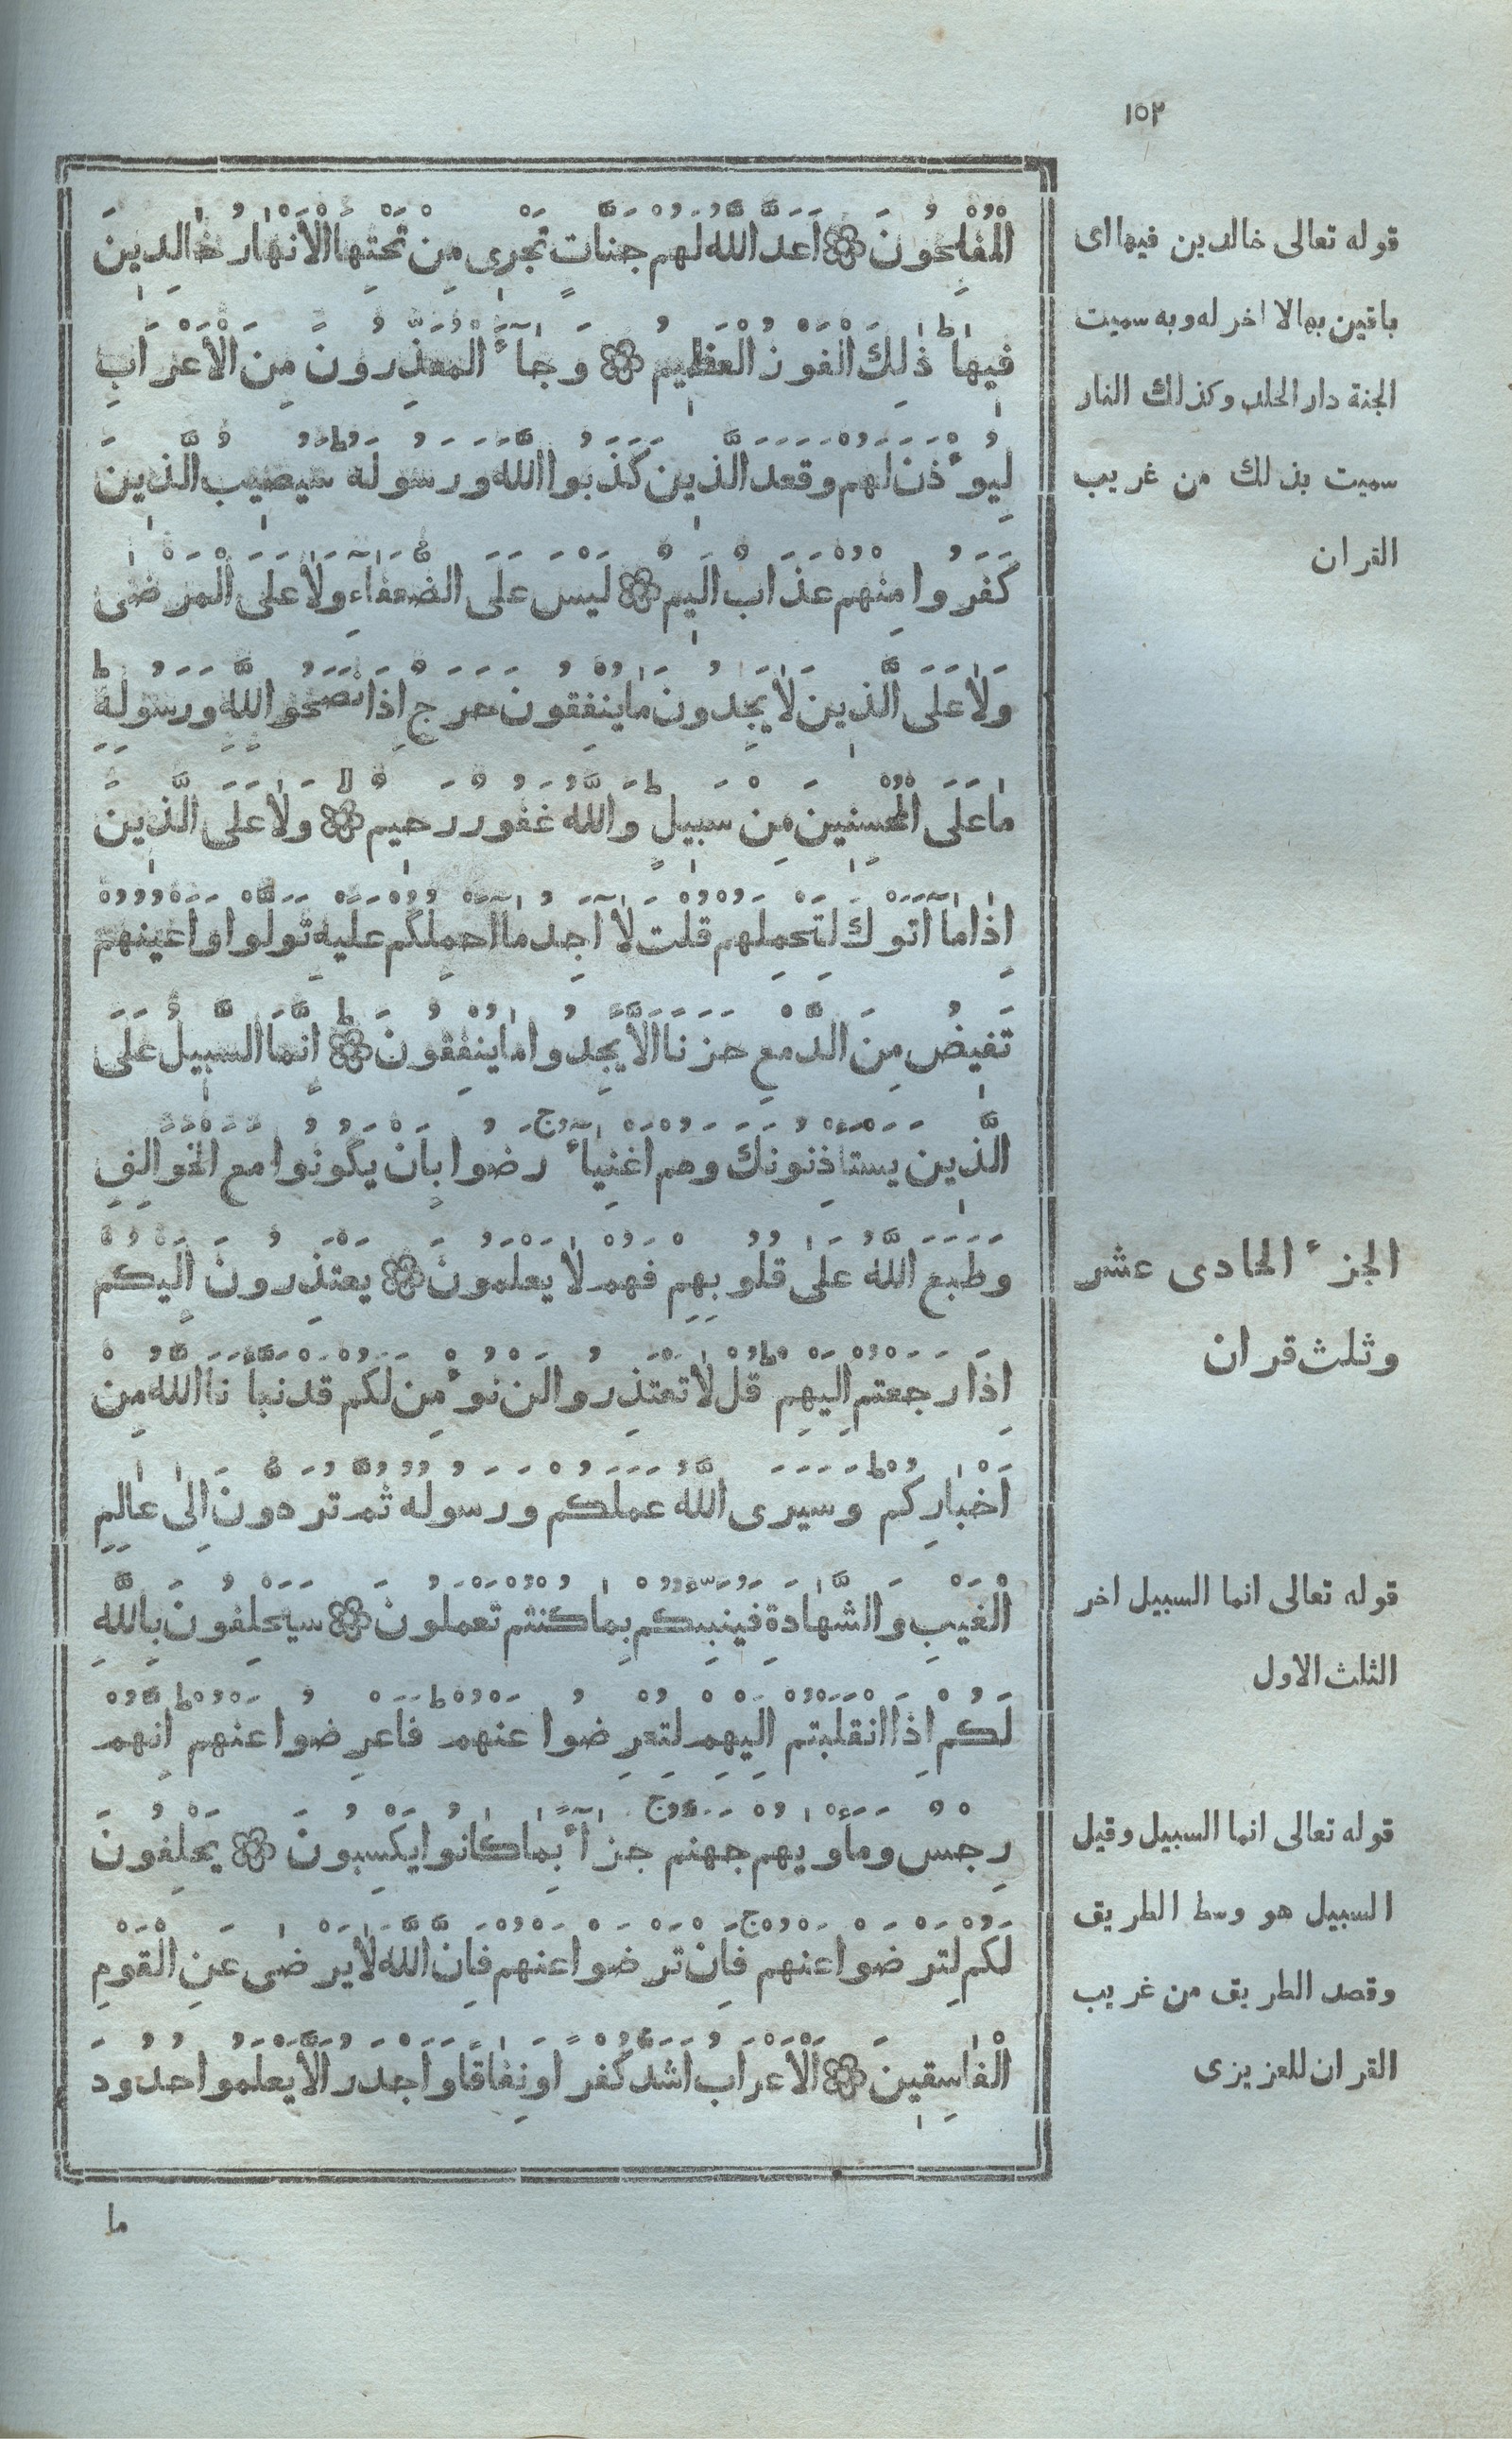 ١٥٢
الْمُفْلِحُونَ ۞ اَعَدَّ اللّٰهُ لَهُمْ جَنَّاتٍ تَجْرٖى مِنْ تَحْتِهَا الْاَنْهَارُ خَالِدٖينَ
فٖيهَاؕ ذٰلِكَ الْفَوْزُ الْعَظٖيمُ ۞ وَجَآءَ الْمُعَذِّرُونَ مِنَ الْاَعْرَابِ
لِيُؤْذَنَ لَهُمْ وَقَعَدَ الَّذٖينَ كَذَبُوا اللّٰهَ وَرَسُولَهُؕ سَيُصٖيبُ الَّذٖينَ
كَفَرُوا مِنْهُمْ عَذَابٌ اَلٖيمٌ ۞ لَيْسَ عَلَى الضُّعَفَآءِ وَلَا عَلَى الْمَرْضٰى
وَلَا عَلَى الَّذٖينَ لَا يَجِدُونَ مَا يُنْفِقُونَ حَرَجٌ اِذَا نَصَحُوا لِلّٰهِ وَرَسُولِهٖؕ
مَا عَلَى الْمُحْسِنٖينَ مِنْ سَبٖيلٍؕ وَاللّٰهُ غَفُورٌ رَحٖيمٌۙ ۞ وَلَا عَلَى الَّذٖينَ
اِذَا مَآ اَتَوْكَ لِتَحْمِلَهُمْ قُلْتَ لَآ اَجِدُ مَآ اَحْمِلُكُمْ عَلَيْهِ تَوَلَّوْا وَاَعْيُنُهُمْ
تَفٖيضُ مِنَ الدَّمْعِ حَزَنًا اَلَّا يَجِدُوا مَا يُنْفِقُونَؕ ۞ اِنَّمَا السَّبٖيلُ عَلَى
الَّذٖينَ يَسْتَأْذِنُونَكَ وَهُمْ اَغْنِيَآءُۚ رَضُوا بِاَنْ يَكُونُوا مَعَ الْخَوَالِفِ
وَطَبَعَ اللّٰهُ عَلٰى قُلُوبِهِمْ فَهُمْ لَا يَعْلَمُونَ ۞ يَعْتَذِرُونَ اِلَيْكُمْ
اِذَا رَجَعْتُمْ اِلَيْهِمْؕ قُلْ لَا تَعْتَذِرُوا لَنْ نُؤْمِنَ لَكُمْ قَدْ نَبَّأَنَا اللّٰهُ مِنْ
اَخْبَارِكُمْؕ وَسَيَرَى اللّٰهُ عَمَلَكُمْ وَرَسُولُهُ ثُمَّ تُرَدُّونَ اِلٰى عَالِمِ
الْغَيْبِ وَالشَّهَادَةِ فَيُنَبِّئُكُمْ بِمَا كُنْتُمْ تَعْمَلُونَ ۞ سَيَحْلِفُونَ بِاللّٰهِ
لَكُمْ اِذَا انْقَلَبْتُمْ اِلَيْهِمْ لِتُعْرِضُوا عَنْهُمْؕ فَاَعْرِضُوا عَنْهُمْؕ اِنَّهُمْ
رِجْسٌ وَمَأْوٰيهُمْ جَهَنَّمُۚ جَزَآءً بِمَا كَانُوا يَكْسِبُونَ ۞ يَحْلِفُونَ
لَكُمْ لِتَرْضَوْا عَنْهُمْۚ فَاِنْ تَرْضَوْا عَنْهُمْ فَاِنَّ اللّٰهَ لَا يَرْضٰى عَنِ الْقَوْمِ
الْفَاسِقٖينَ ۞ اَلْاَعْرَابُ اَشَدُّ كُفْرًا وَنِفَاقًا وَاَجْدَرُ اَلَّا يَعْلَمُوا حُدُودَ
ما
قوله تعالى خالدين فيها اى
باقين بها لا اخر له وبه سميت
الجنة دار الخلد وكذلك النار
سميت بذلك من غريب
القران
الجزء الحادى عشر
وثلث قران
قوله تعالى انما السبيل اخر
الثلث الاول
قوله تعالى انما السبيل وقيل
السبيل هو وسط الطريق
وقصد الطريق من غريب
القران للعزيزى